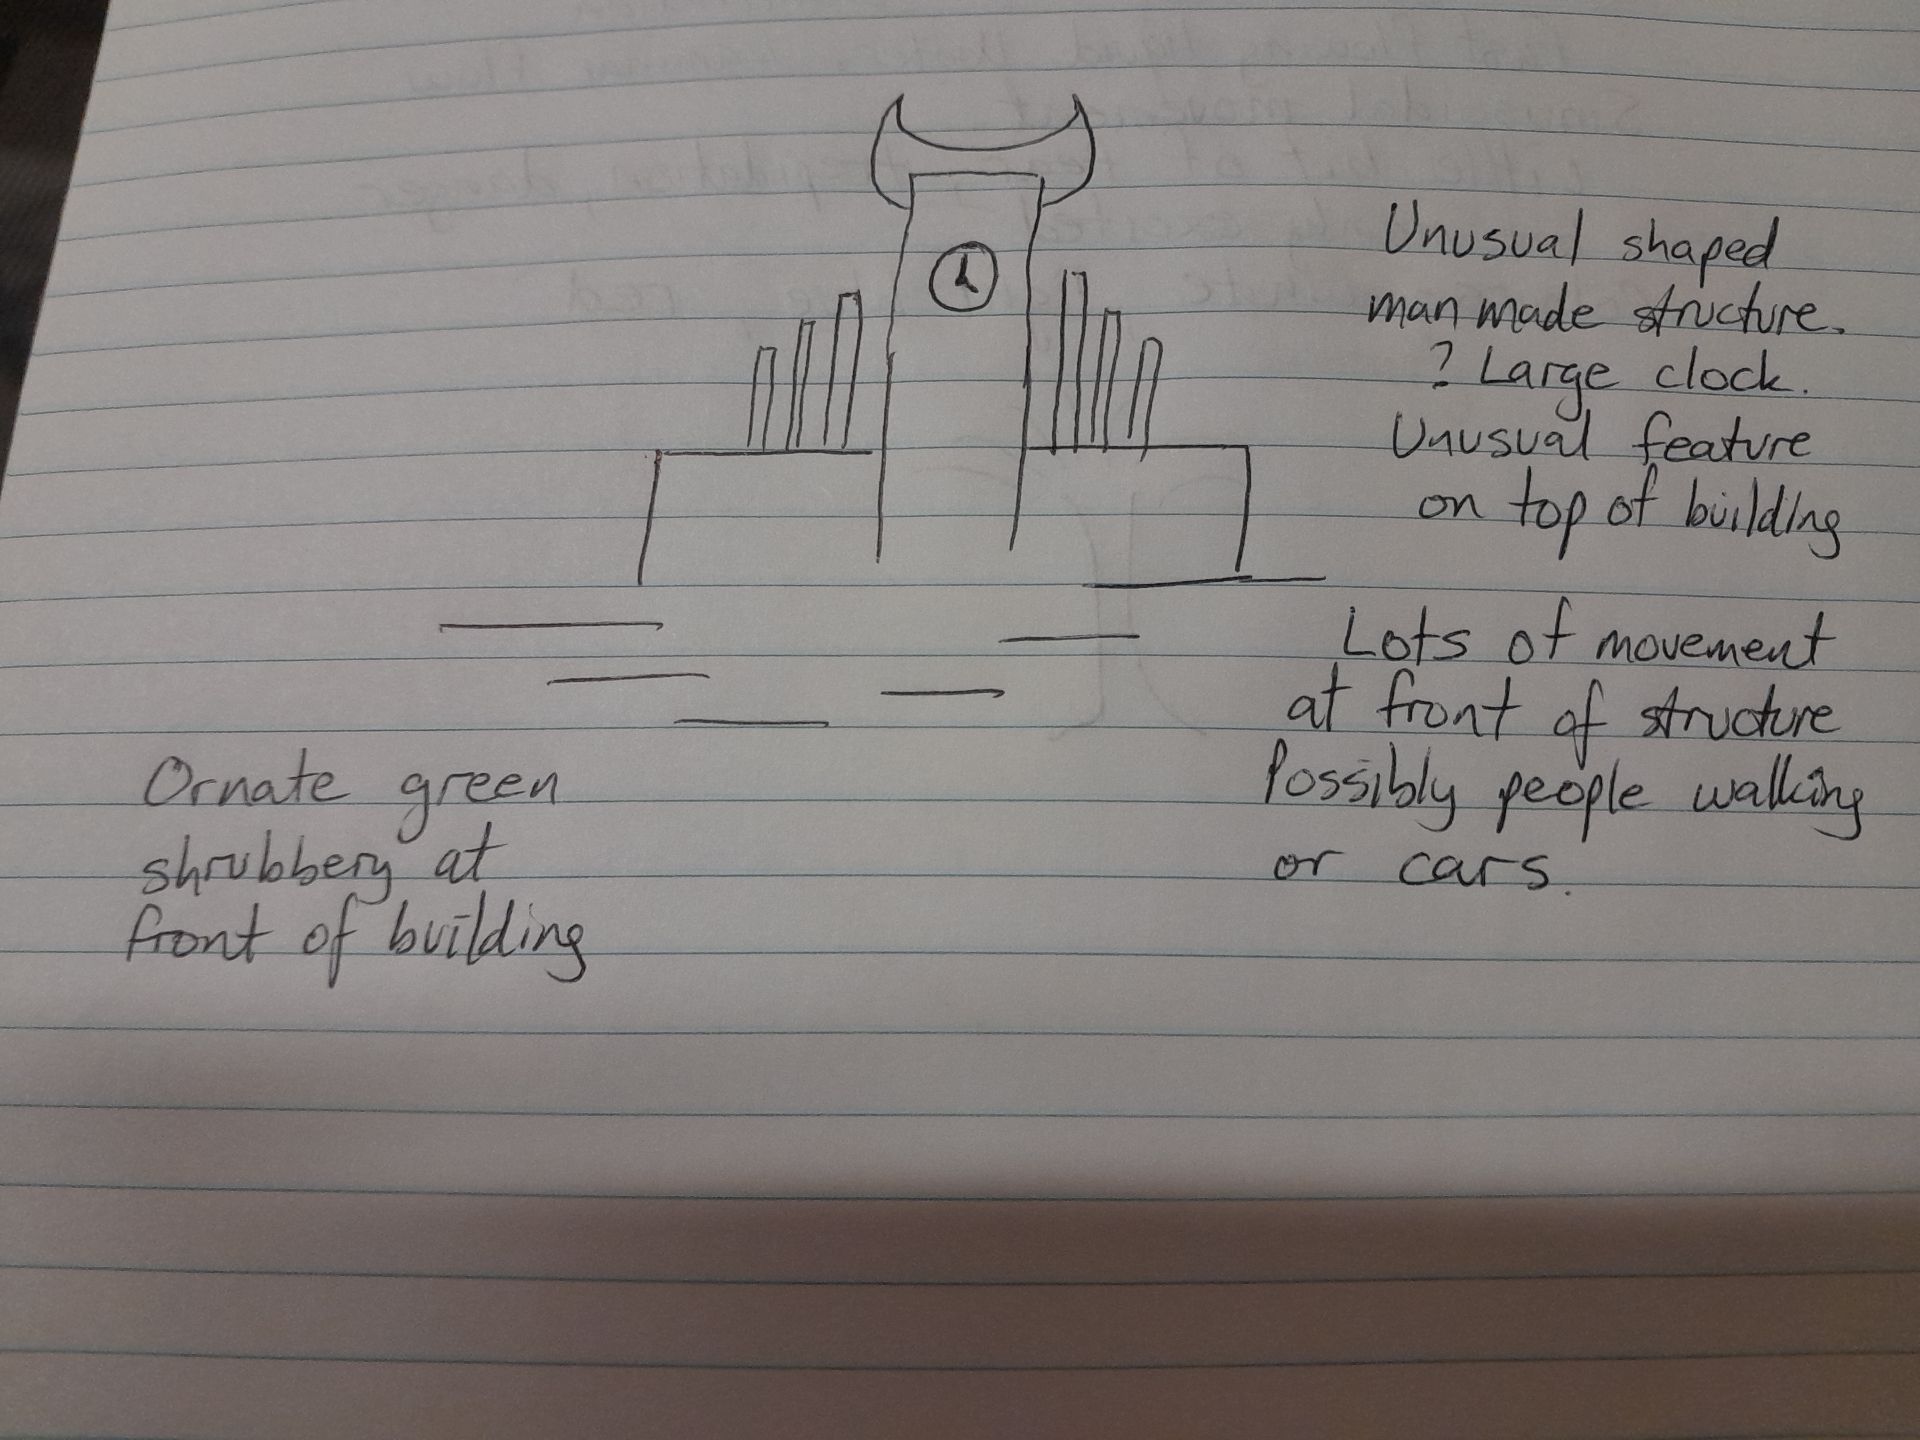 Unusual shaped
man made structure.
? Large clock.
Unusual feature
on top of building
Lots of movement
at front of structure
Possibly people walking
or cars.
Ornate green
shrubbery at
front of building